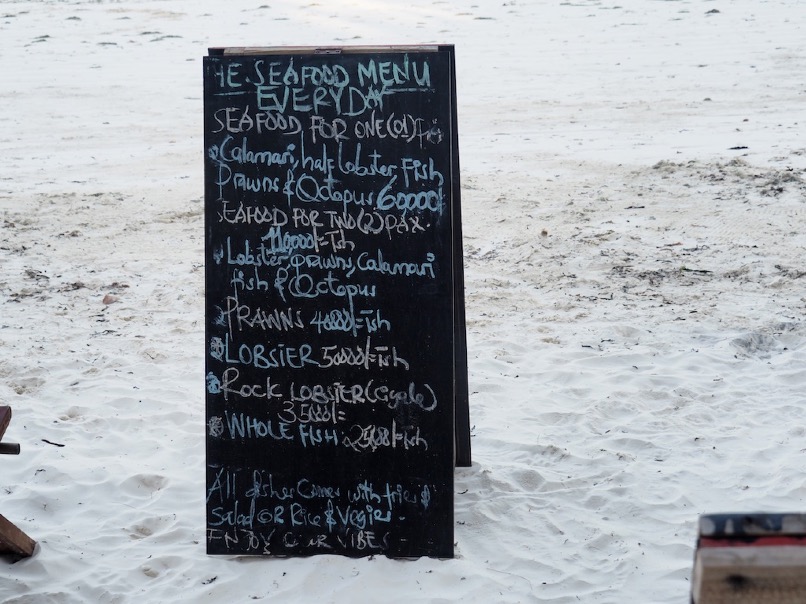 HE. SEAFOOD MENU
EVERYDAY
SEAFOOD FOR ONE(01)
Calamari, half lobster, Fish
Prawns & Octopus 60000/=
SEAFOOD FOR TWO(2) PAX.
110000/= Tsh
Lobster, prawns, Calamari
fish & Octopus
PRAWNS 40000/= Tsh
LOBSTER 50000/= Tsh
ROCK LOBSTER (Cigale)
35000/=
WHOLE FISH. 25000/= Tsh
All dishes Comes with fries
Salad OR Rice & Vegies.
ENJOY OUR VIBES